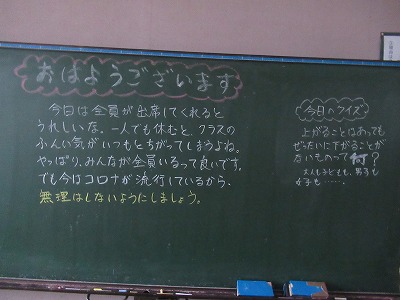 おはようございます
今日は全員が出席してくれると
うれしいな。一人でも休むと、クラスの
ふんい気がいつもとちがってしまうよね。
やっぱり、みんなが全員いるって良いです。
でも今はコロナが流行しているから、
無理はしないようにしましょう。
今日のクイズ
上がることはあっても
ぜったいに下がることが
ないものって何?
大人も子どもも、男子も
女子も……